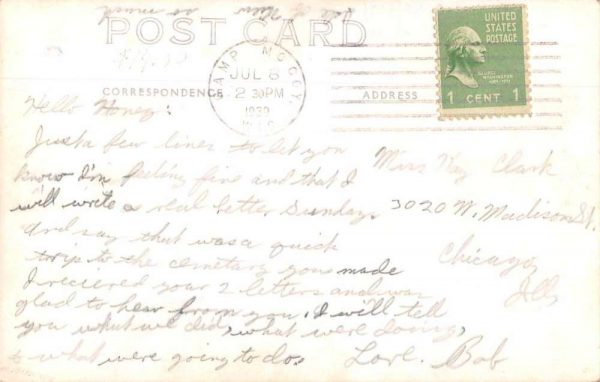 POST CARD
CAMP McCOY,
JUL 6
2 30 PM
1939
WIS
UNITED
STATES
POSTAGE
GEORGE
WASHINGTON
1789-1797
1 CENT 1
CORRESPONDENCE
ADDRESS
Hello Honey:
Just a few lines to let you
know I'm feeling fine and that I
will write a real letter Sunday.
And say that was a quick
trip to the cemetary you made
I recieved your 2 letters and was
glad to hear from you. I will tell
you what we did, what were doing,
& what were going to do.
Love Bob
Miss Kay Clark
3020 W. Madison St.
Chicago,
Ill.